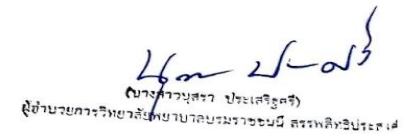 (นางสาวบุศรา ประเสริฐศรี)
ผู้อำนวยการวิทยาลัยพยาบาลบรมราชชนนี สรรพสิทธิประสงค์